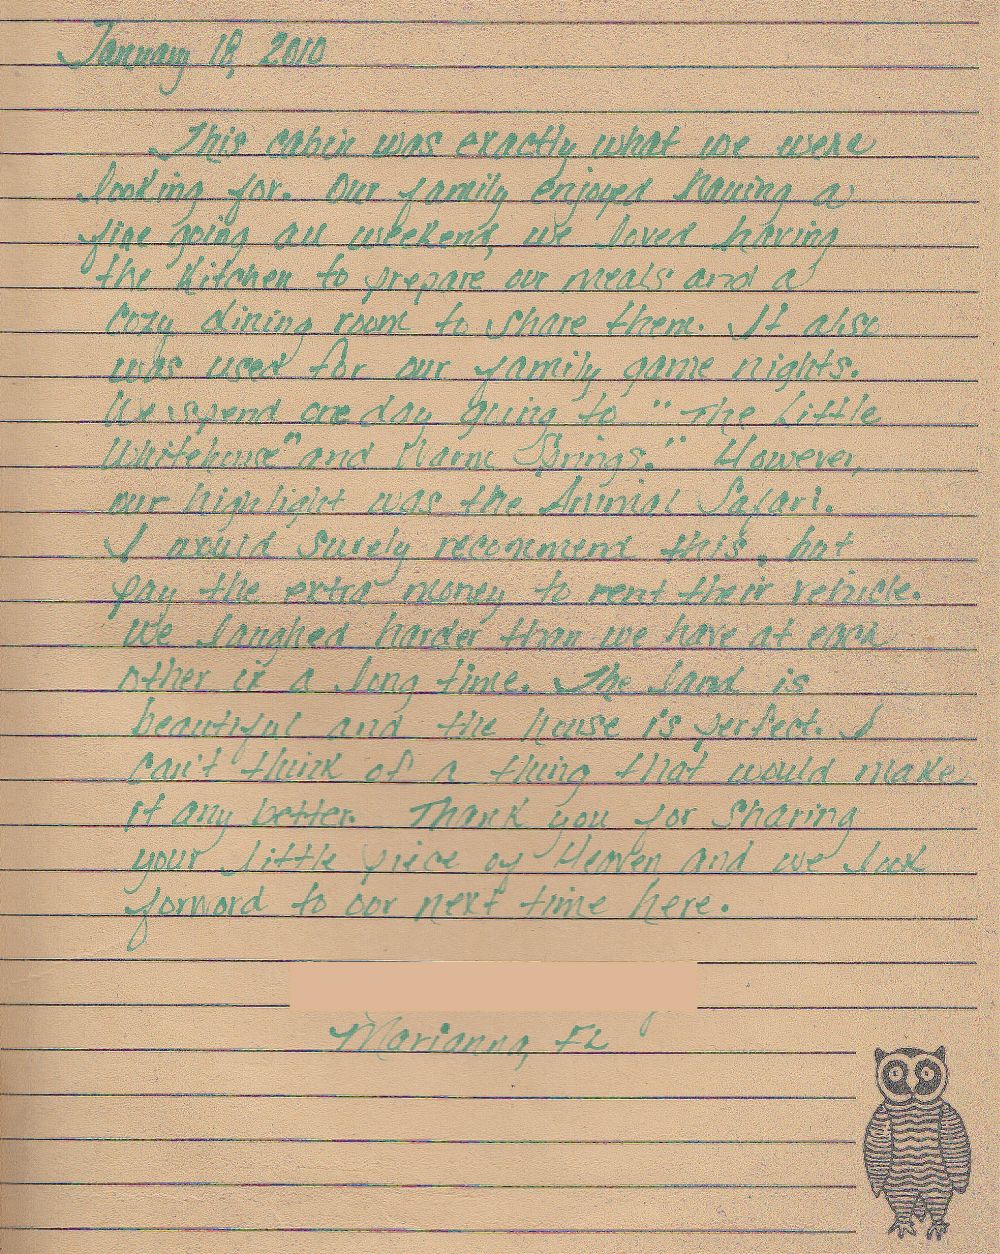 January 18, 2010
This cabin was exactly what we were
looking for. Our family enjoyed having a
fire going all weekend, we loved having
the kitchen to prepare our meals and a
cozy dining room to share them. It also
was used for our family game nights.
We spend one day going to "The Little
Whitehouse" and Warm Springs." However,
our highlight was the Animal Safari.
I would surely recommend this, but
pay the extra money to rent their vehicle.
We laughed harder than we have at each
other in a long time. The land is
beautiful and the house is perfect. I
can't think of a thing that would make
it any better. Thank you for sharing
your little piece of Heaven and we look
forword to our next time here.
Marianna, FL